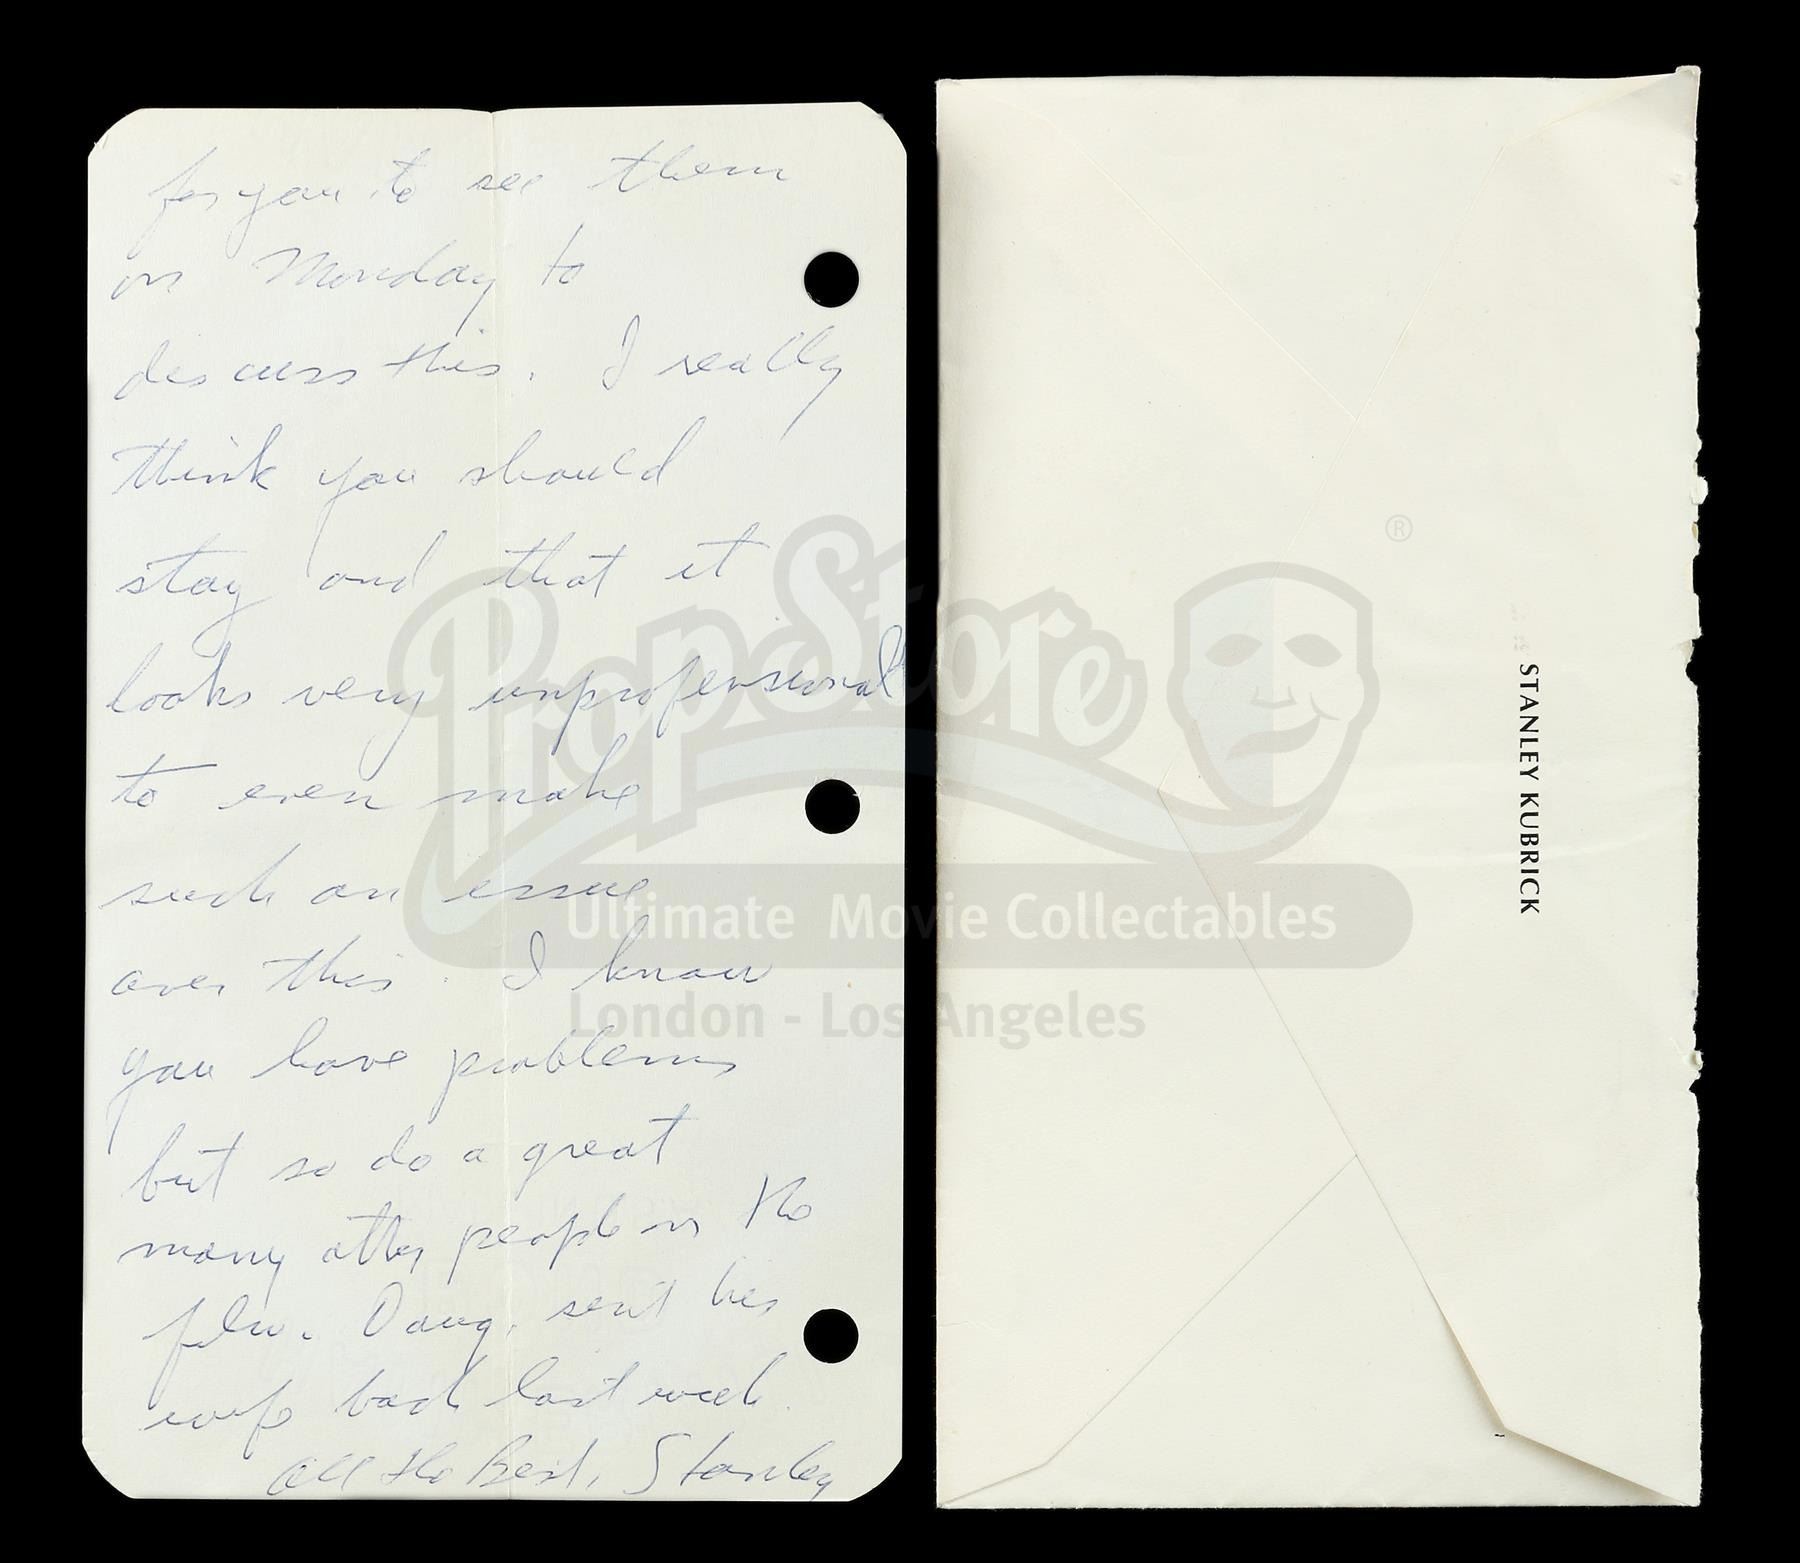 for you to see them
on Monday to
discuss this. I really
think you should
stay and that it
looks very unprofessional
to even make
such an issue
over this. I know
you have problems
but so do a great
many other people on the
film. Doug. sent his
wife back last week.
All the Best, Stanley
STANLEY KUBRICK
PropStore
®
Ultimate Movie Collectables
London - Los Angeles